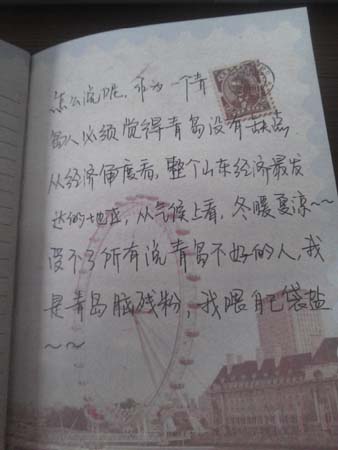 怎么说呢，作为一个青
岛人必须觉得青岛没有缺点
从经济角度看，整个山东经济最发
达的地区，从气候上看，冬暖夏凉~~
受不了所有说青岛不好的人，我
是青岛脑残粉，我喂自己袋盐
~~